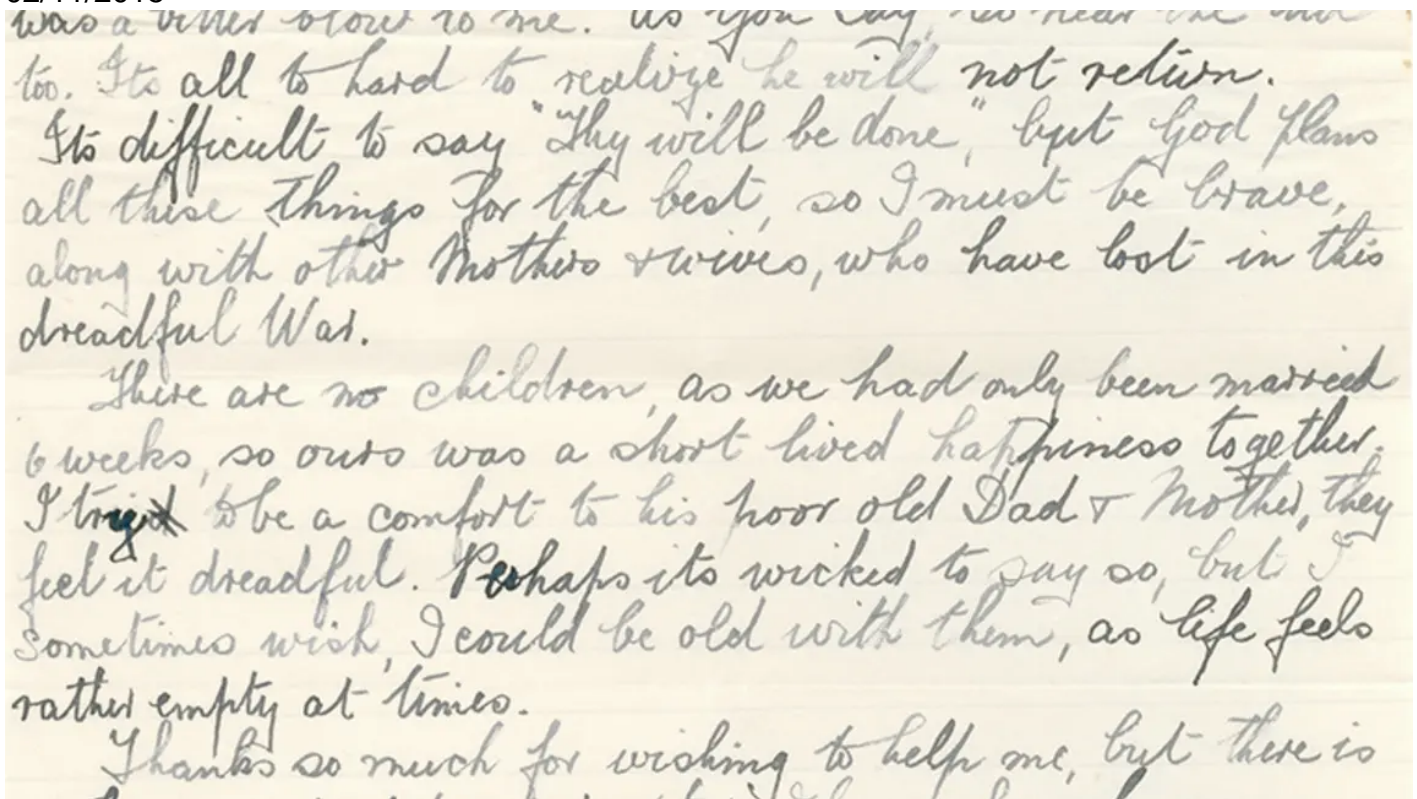 was a bitter blow to me. As you say, so near the end
too. Its all to hard to realize he will not return.
Its difficult to say "Thy will be done", but God plans
all these things for the best, so I must be brave,
along with other Mothers & wives, who have lost in this
dreadful War.
There are no children, as we had only been married
6 weeks, so ours was a short lived happiness together.
I try to be a comfort to his poor old Dad & Mother, they
feel it dreadful. Perhaps its wicked to say so, but I
sometimes wish, I could be old with them, as life feels
rather empty at times.
Thanks so much for wishing to help me, but there is